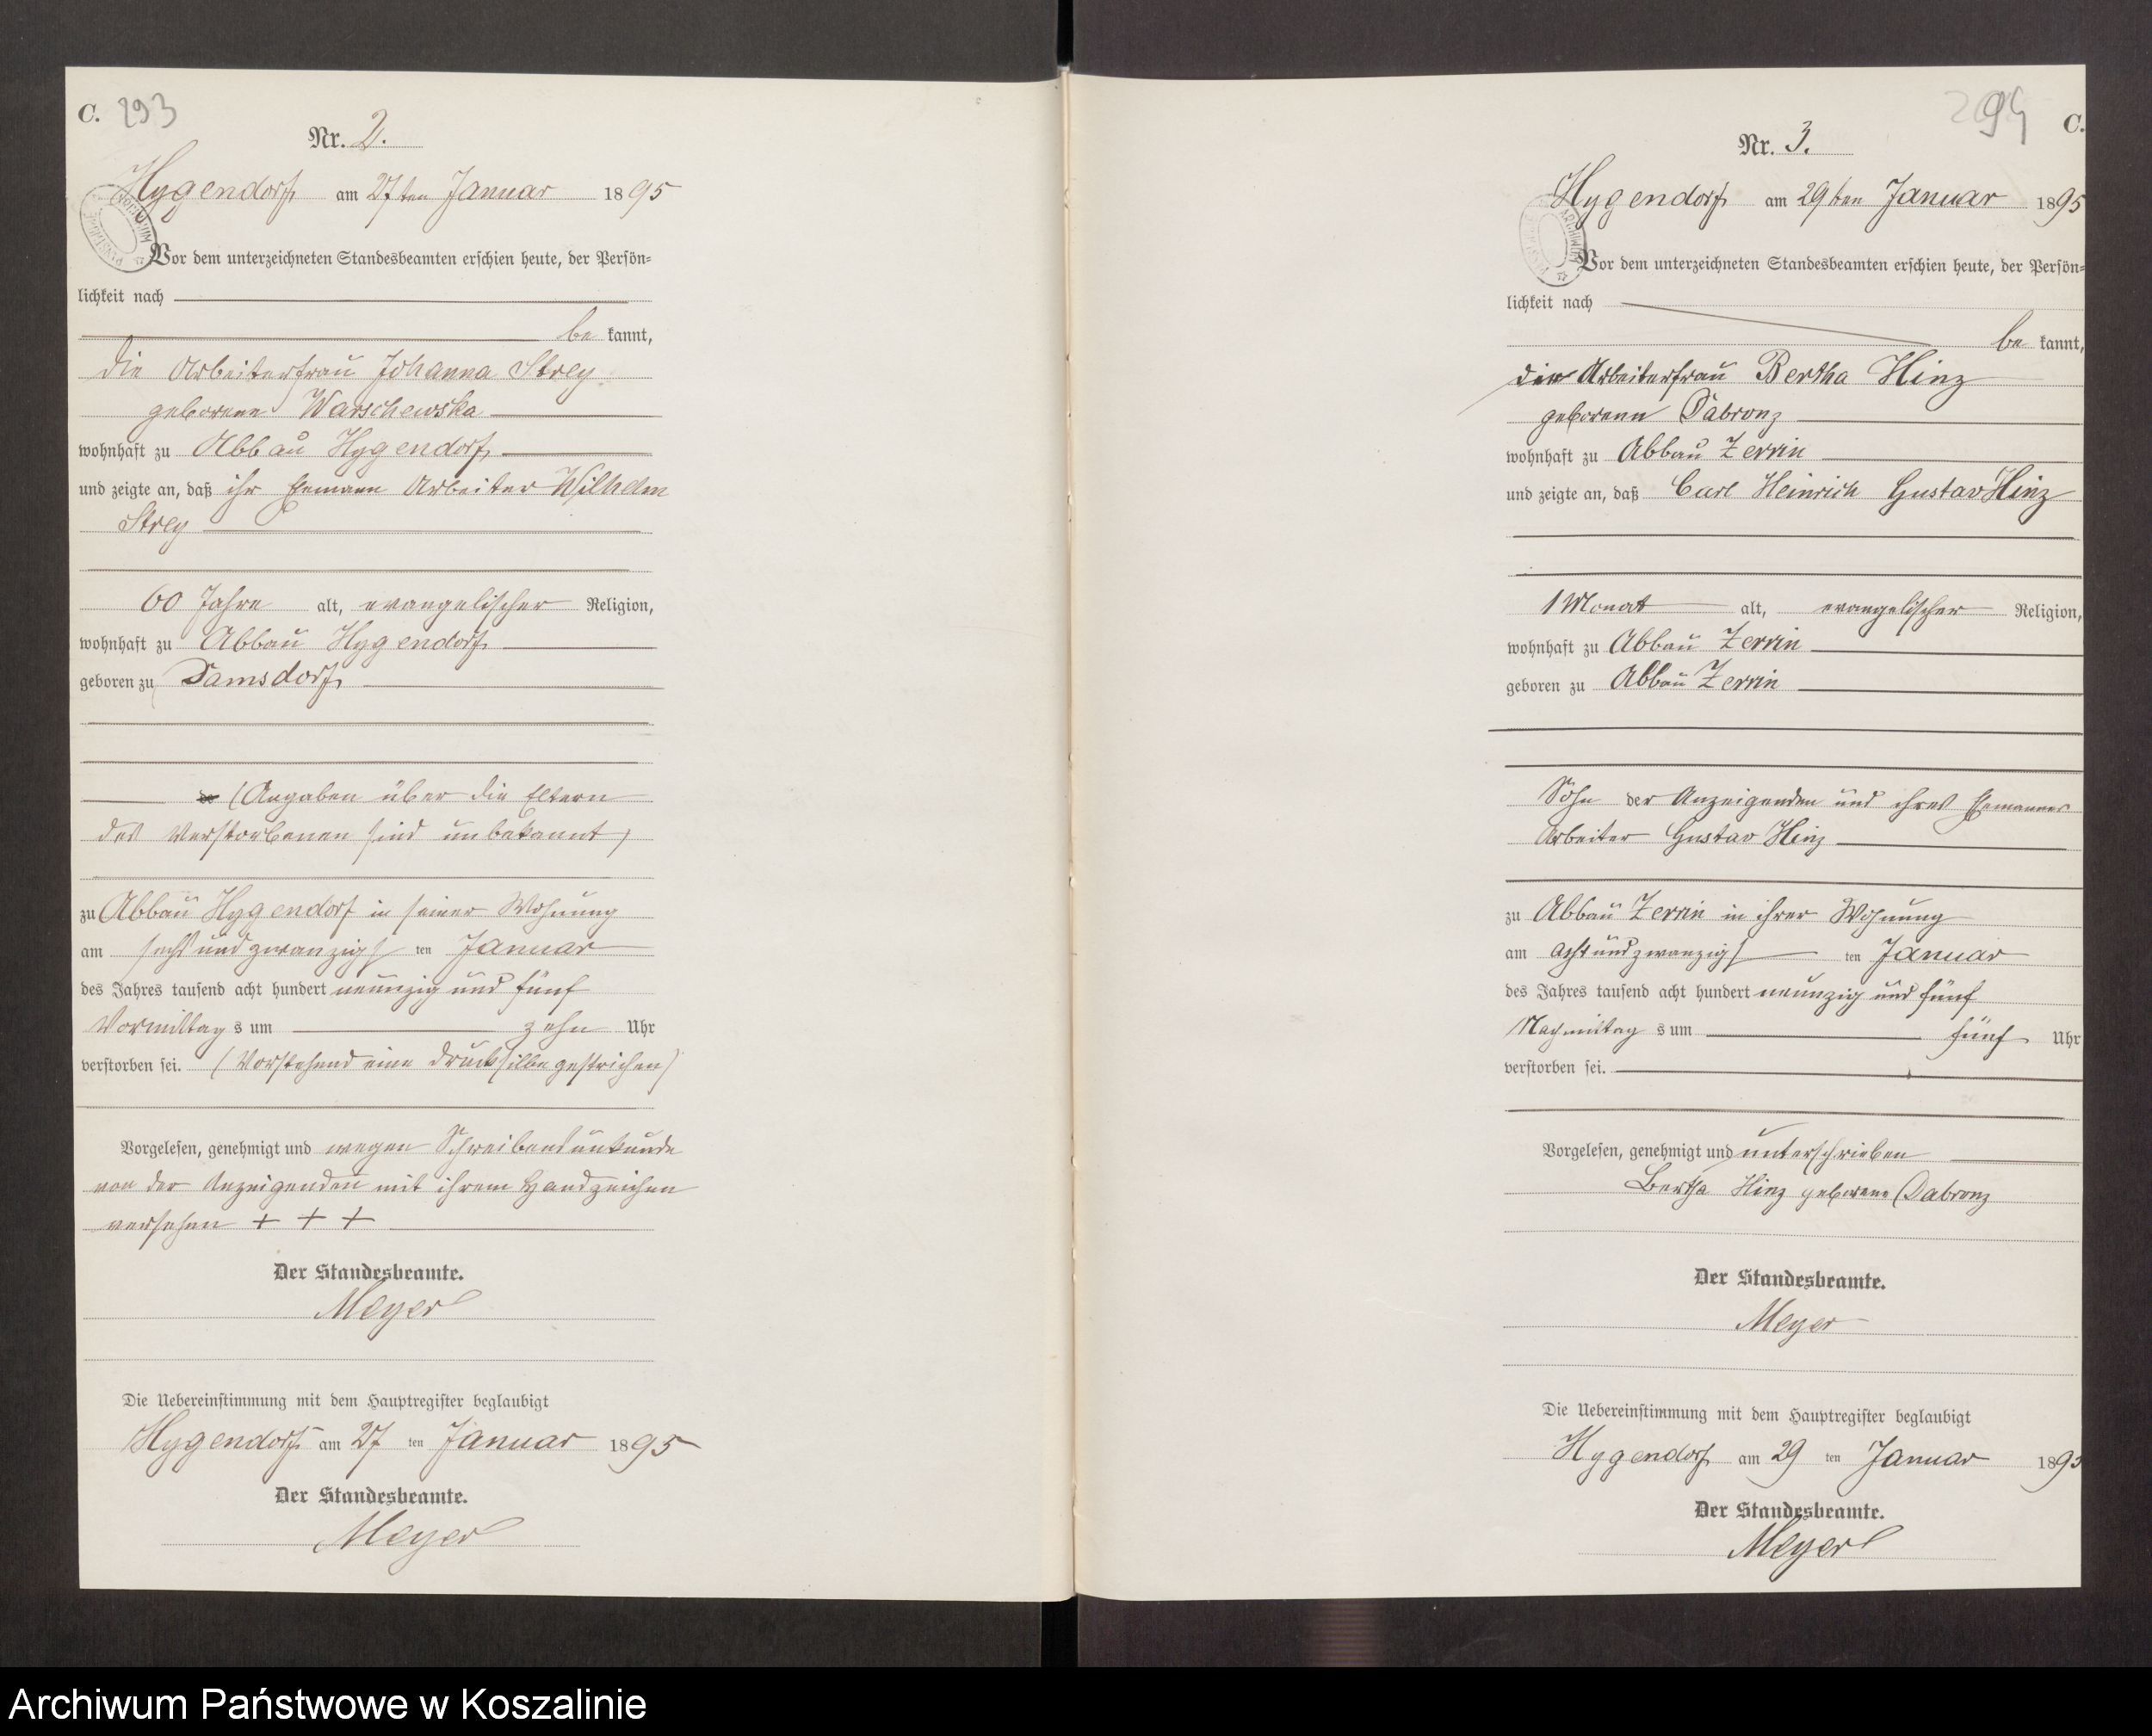 C. 293
Nr. 2.
Hygendorf am 27ten Januar 1895
Vor dem unterzeichneten Standesbeamten erschien heute, der Persön=
lichkeit nach
be kannt,
die Arbeiterfrau Johanna Strey
geborene Warschewska
wohnhaft zu Abbau Hygendorf
und zeigte an, daß ihr Ehemann Arbeiter Wilhelm
Strey
60 Jahre alt, evangelischer Religion,
wohnhaft zu Abbau Hygendorf
geboren zu Damsdorf
de (Angaben über die Eltern
des Verstorbenen sind unbekannt)
zu Abbau Hygendorf in seiner Wohnung
am sechsundzwanzigsten Januar
des Jahres tausend acht hundert neunzig und fünf
Vormittags um zehn Uhr
verstorben sei. (Vorstehend eine Drucksilbe gestrichen)
Vorgelesen, genehmigt und wegen Schreibensunkunde
von der Anzeigenden mit ihrem Handzeichen
versehen + + +
Der Standesbeamte.
Meyer
Die Uebereinstimmung mit dem Hauptregister beglaubigt
Hygendorf am 27 ten Januar 1895
Der Standesbeamte.
Meyer
294 C.
Nr. 3.
Hygendorf am 29ten Januar 1895
Vor dem unterzeichneten Standesbeamten erschien heute, der Persön=
lichkeit nach
be kannt,
die Arbeiterfrau Bertha Hinz
geborene Dabronz
wohnhaft zu Abbau Zerrin
und zeigte an, daß Carl Heinrich Gustav Hinz
1 Monat alt, evangelischer Religion,
wohnhaft zu Abbau Zerrin
geboren zu Abbau Zerrin
Sohn der Anzeigenden und ihres Ehemannes
Arbeiter Gustav Hinz
zu Abbau Zerrin in ihrer Wohnung
am achtundzwanzigsten Januar
des Jahres tausend acht hundert neunzig und fünf
Nachmittags um fünf Uhr
verstorben sei.
Vorgelesen, genehmigt und unterschrieben
Bertha Hinz geborene Dabronz
Der Standesbeamte.
Meyer
Die Uebereinstimmung mit dem Hauptregister beglaubigt
Hygendorf am 29 ten Januar 1895
Der Standesbeamte.
Meyer
Archiwum Państwowe w Koszalinie